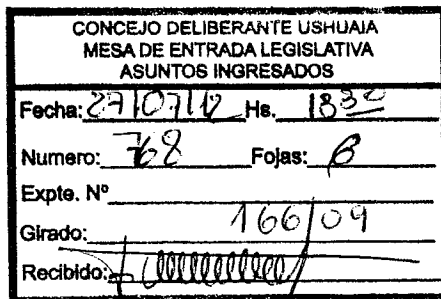 CONCEJO DELIBERANTE USHUAIA
MESA DE ENTRADA LEGISLATIVA
ASUNTOS INGRESADOS
Fecha: 27/07/12 Hs. 18 30
Numero: 768 Fojas:
Expte. Nº
Girado: 166/09
Recibido: